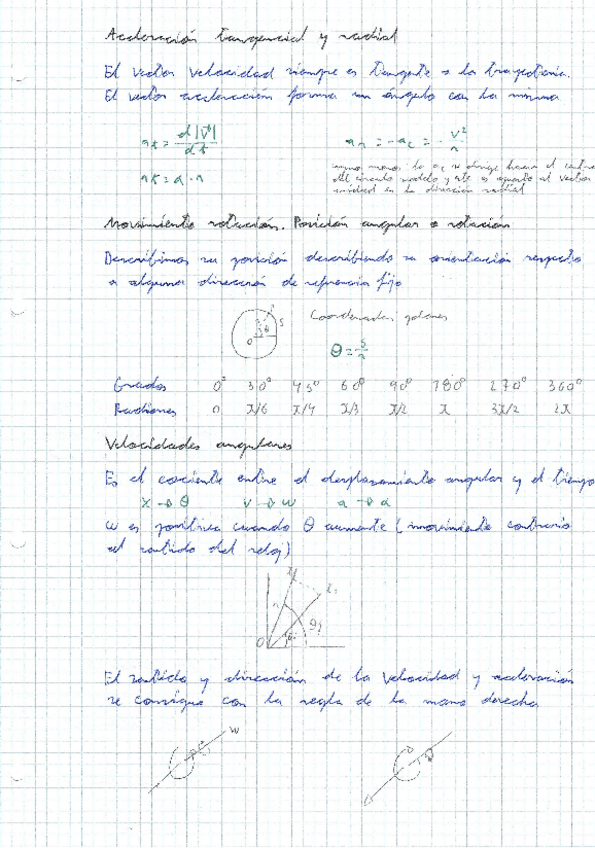 Aceleración tangencial y radial
El vector velocidad siempre es Tangente a la trayectoria.
El vector aceleración forma un ángulo con la misma
at = d|V|/dt
ar = -ac = - v²/r
at = α · r
signo menos: la ac se dirige hacia el centro
del círculo modelo y este es opuesto al vector
unidad en la dirección radial
Movimiento rotación. Posición angular o rotación
Describimos su posición describiendo su orientación respecto
a alguna dirección de referencia fijo
Coordenadas polares
r
S
θ
O
θ = s/r
Grados 0° 30° 45° 60° 90° 180° 270° 360°
Radianes 0 π/6 π/4 π/3 π/2 π 3π/2 2π
Velocidades angulares
Es el cociente entre el desplazamiento angular y el tiempo
x → θ v → w a → α
w es positiva cuando θ aumente (movimiento contrario
al sentido del reloj)
O
El sentido y dirección de la velocidad y aceleración
se consigue con la regla de la mano derecha
w